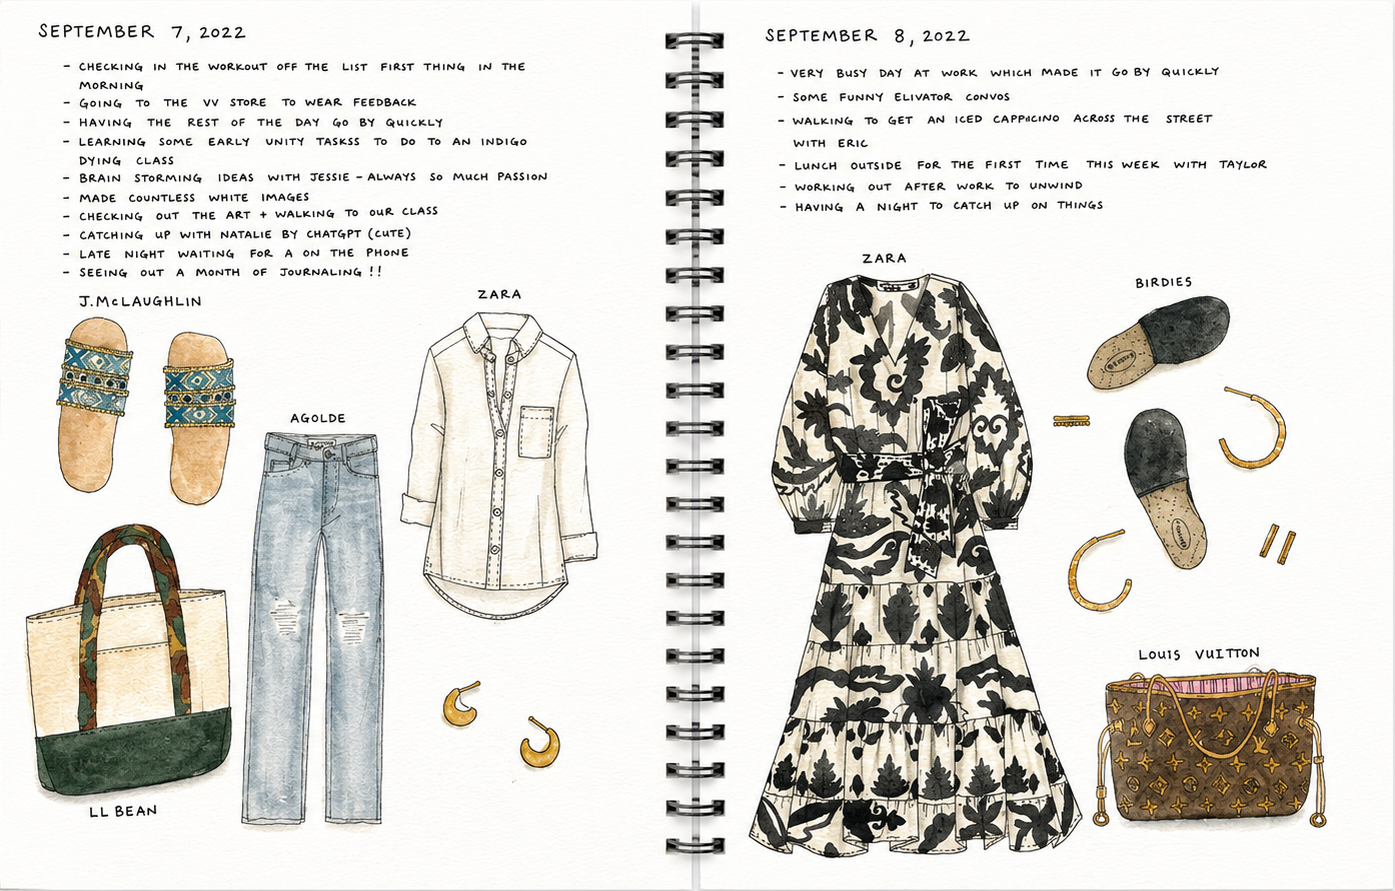 SEPTEMBER 7, 2022
- CHECKING IN THE WORKOUT OFF THE LIST FIRST THING IN THE
MORNING
- GOING TO THE VV STORE TO WEAR FEEDBACK
- HAVING THE REST OF THE DAY GO BY QUICKLY
- LEARNING SOME EARLY UNITY TASKSS TO DO TO AN INDIGO
DYING CLASS
- BRAIN STORMING IDEAS WITH JESSIE - ALWAYS SO MUCH PASSION
- MADE COUNTLESS WHITE IMAGES
- CHECKING OUT THE ART + WALKING TO OUR CLASS
- CATCHING UP WITH NATALIE BY CHATGPT (CUTE)
- LATE NIGHT WAITING FOR A ON THE PHONE
- SEEING OUT A MONTH OF JOURNALING !!
J.McLAUGHLIN
ZARA
AGOLDE
LL BEAN
SEPTEMBER 8, 2022
- VERY BUSY DAY AT WORK WHICH MADE IT GO BY QUICKLY
- SOME FUNNY ELIVATOR CONVOS
- WALKING TO GET AN ICED CAPPICINO ACROSS THE STREET
WITH ERIC
- LUNCH OUTSIDE FOR THE FIRST TIME THIS WEEK WITH TAYLOR
- WORKING OUT AFTER WORK TO UNWIND
- HAVING A NIGHT TO CATCH UP ON THINGS
ZARA
BIRDIES
LOUIS VUITTON